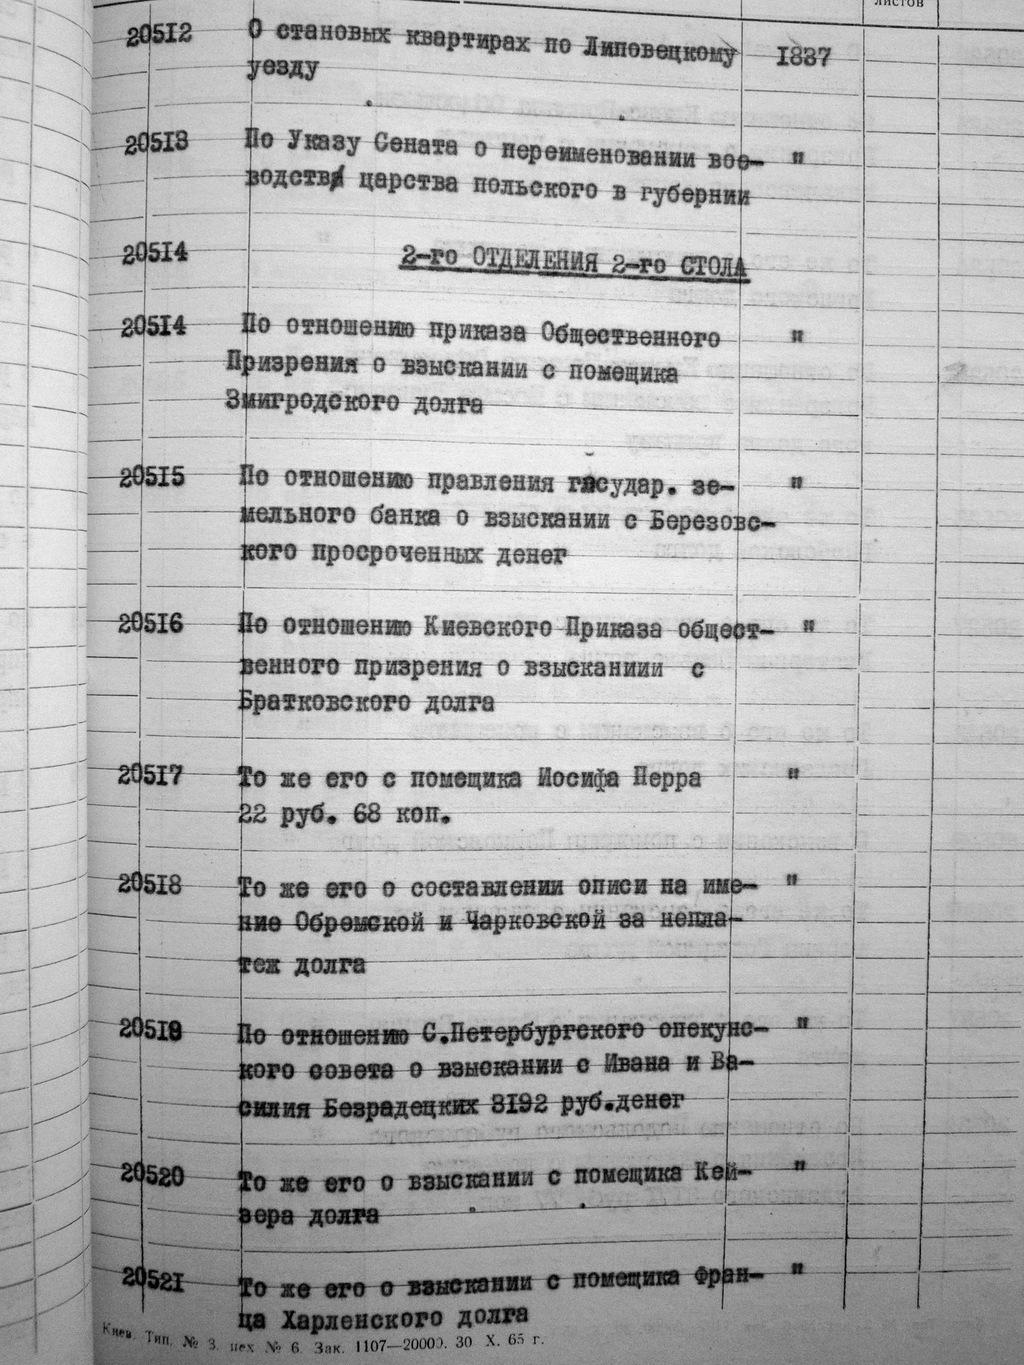 листов
20512 О становых квартирах по Липовецкому 1837
уезду
20513 По Указу Сената о переименовании вое- "
водств царства польского в губернии
20514 2-го ОТДЕЛЕНИЯ 2-го СТОЛА
20514 По отношению приказа Общественного "
Призрения о взыскании с помещика
Змигродского долга
20515 По отношению правления государ. зе- "
мельного банка о взыскании с Березовс-
кого просроченных денег
20516 По отношению Киевского Приказа общест- "
венного призрения о взысканиии с
Братковского долга
20517 То же его с помещика Иосифа Перра "
22 руб. 68 коп.
20518 То же его о составлении описи на име- "
ние Обремской и Чарковской за непла-
теж долга
20519 По отношению С.Петербургского опекунс- "
кого совета о взыскании с Ивана и Ва-
силия Безрадецких 3192 руб.денег
20520 То же его о взыскании с помещика Кей- "
зера долга
20521 То же его о взыскании с помещика Фран- "
ца Харленского долга
Киев. Тип. № 3. цех № 6. Зак. 1107—20000. 30 X. 65 г.